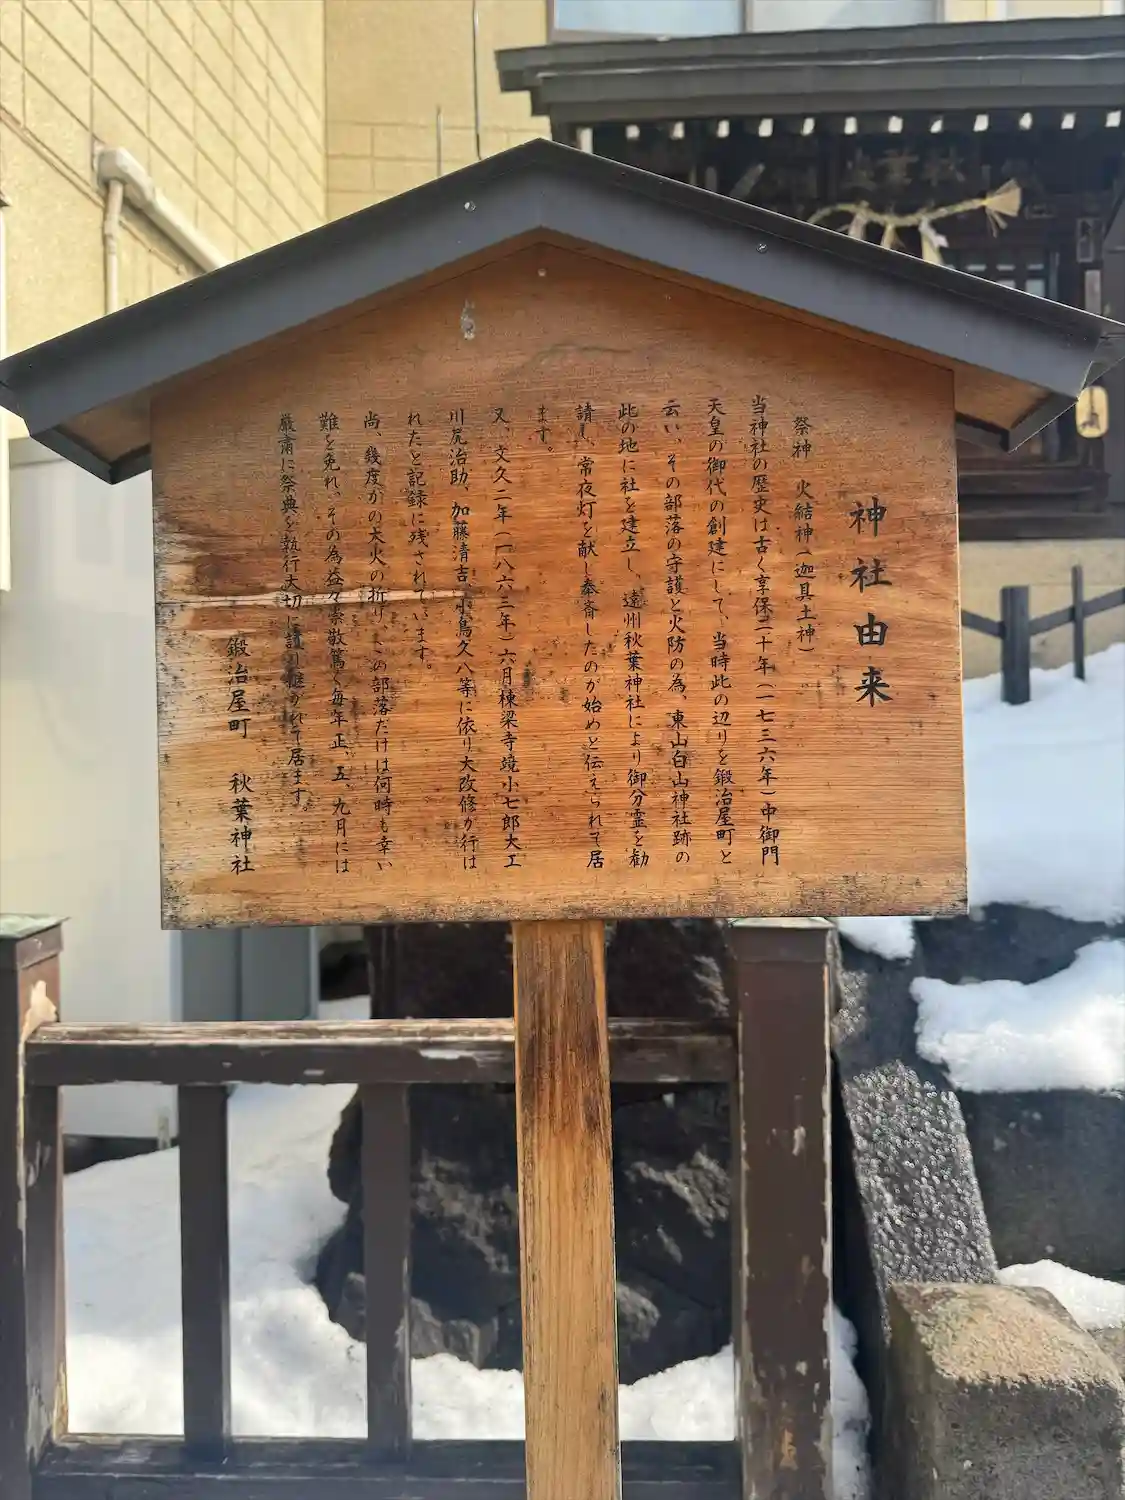 神社由来
祭神 火結神(迦具土神)
当神社の歴史は古く享保二十年(一七三六年)中御門
天皇の御代の創建にして、当時此の辺りを鍛冶屋町と
云い、その部落の守護と火防の為、東山白山神社跡の
此の地に社を建立し、遠州秋葉神社により御分霊を勧
請し、常夜灯を献し奉斎したのが始めと伝えられて居
ます。
又、文久二年(一八六三年)六月棟梁寺境小七郎大工
川尻治助、加藤清吉、小鳥久八等に依り大改修が行は
れたと記録に残されています。
尚、幾度かの大火の折り、この部落だけは何時も幸い
難を免れ、その為益々崇敬篤く毎年正、五、九月には
厳粛に祭典を執行大切に護り継がれて居ます。
鍛冶屋町 秋葉神社
秋葉